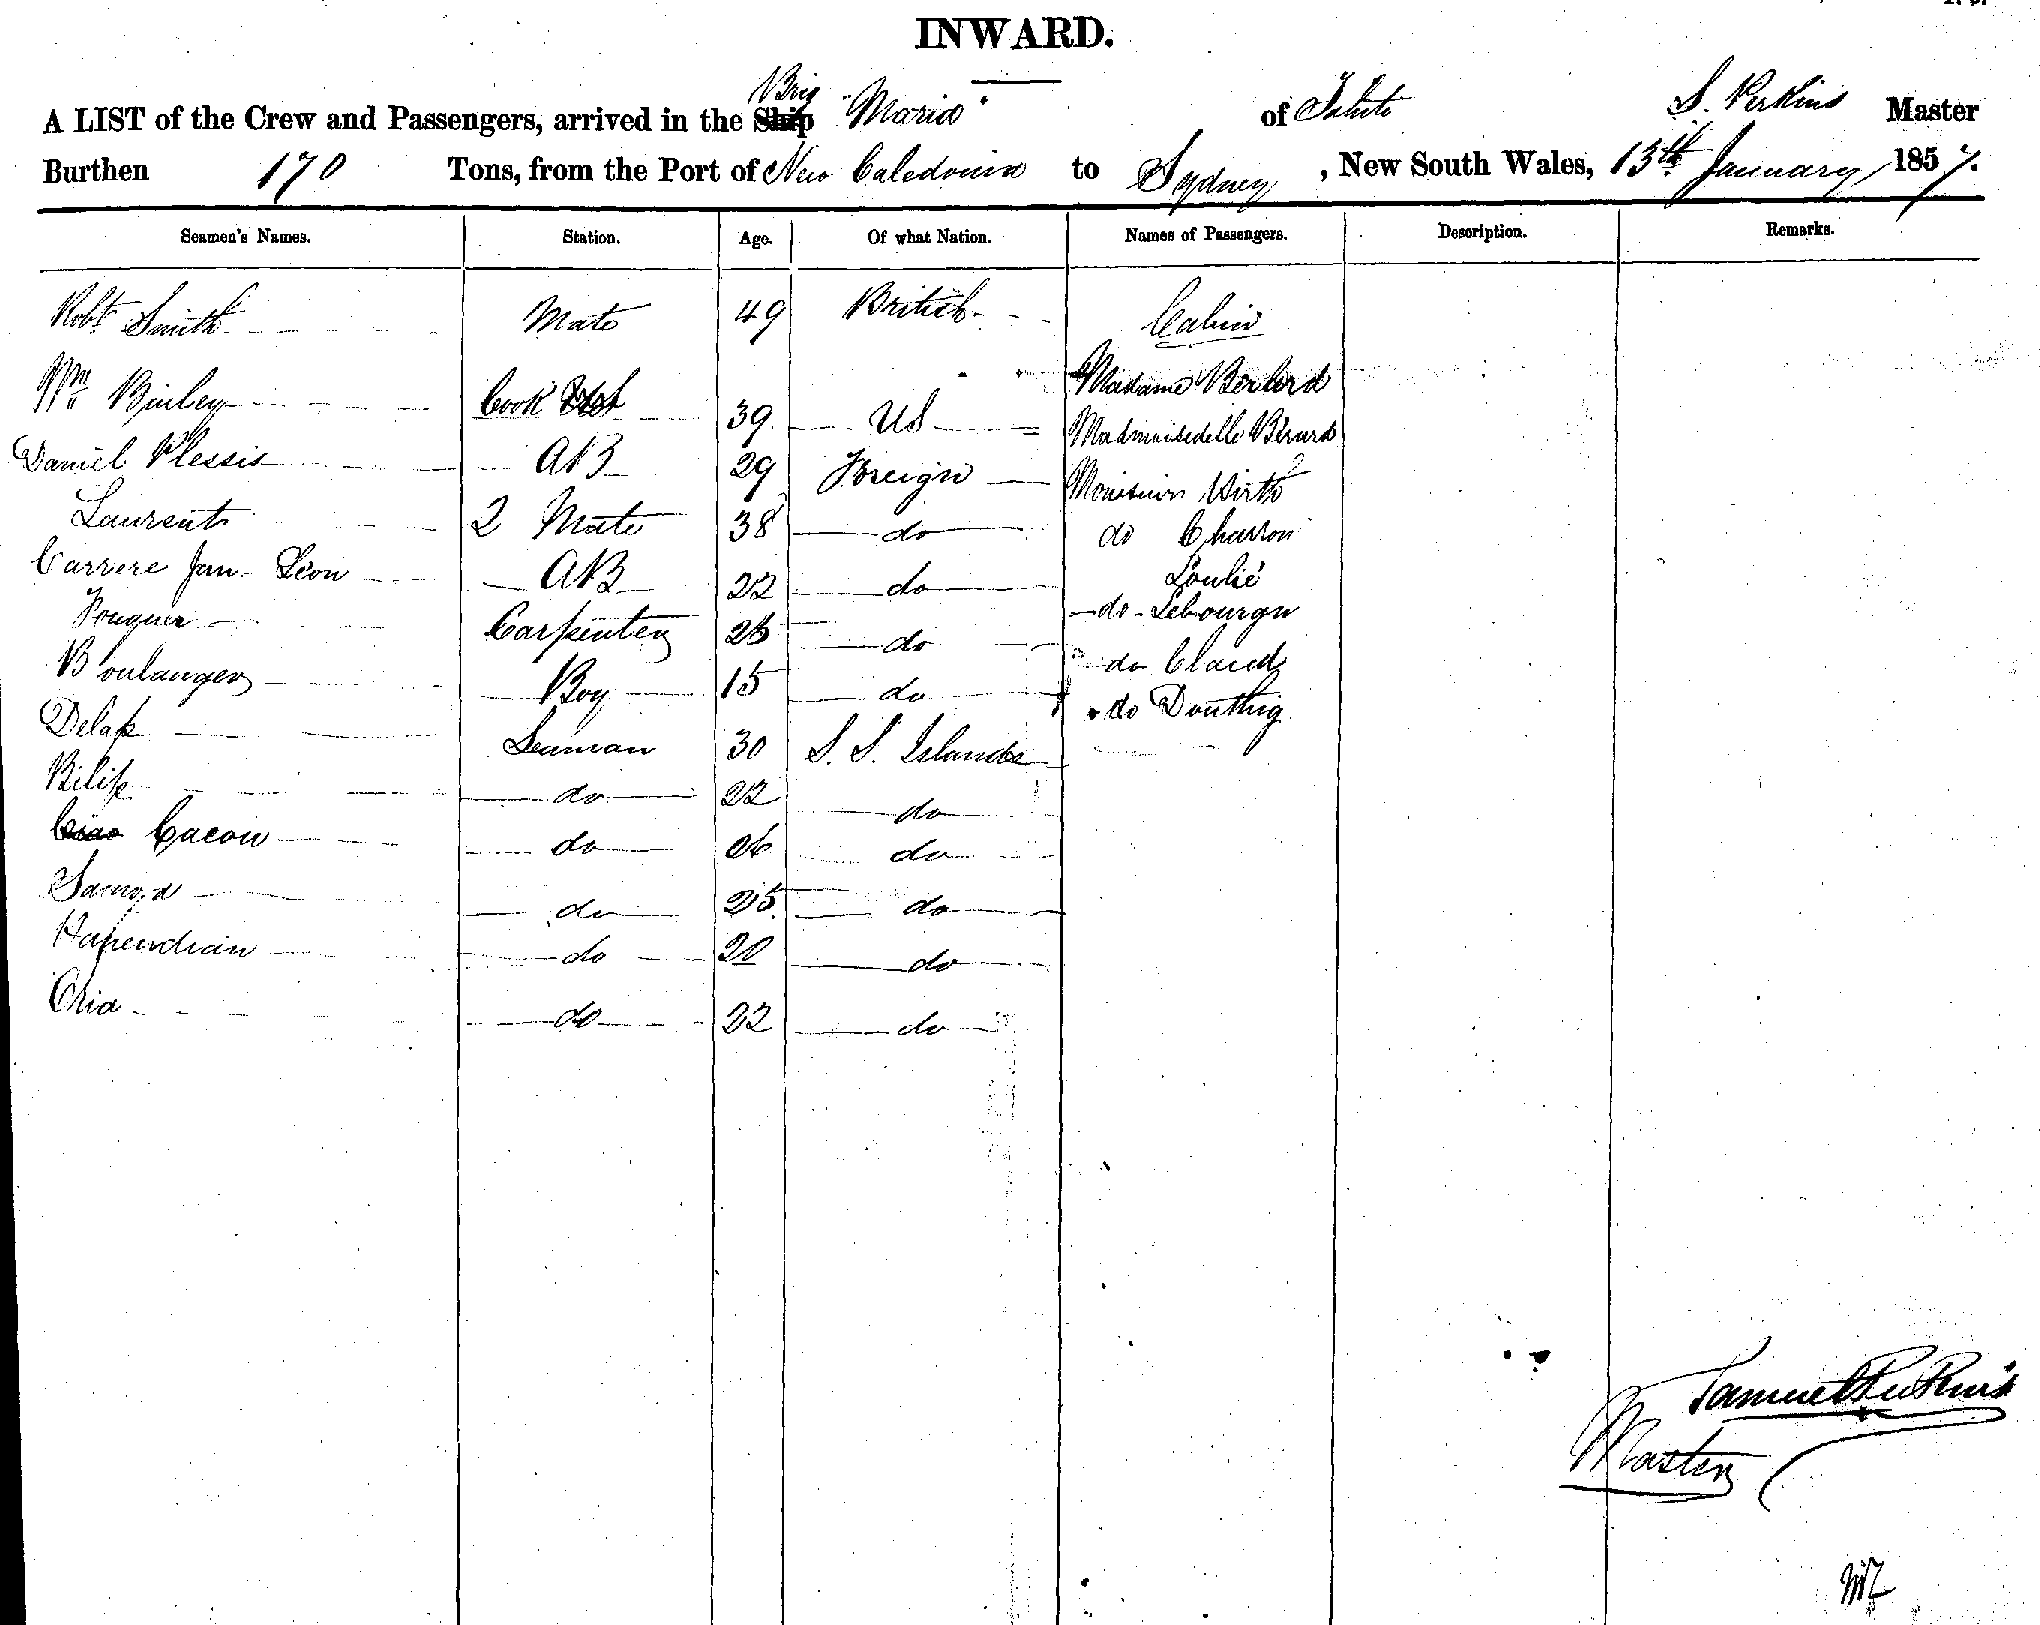 INWARD.
A LIST of the Crew and Passengers, arrived in the Brig "Maria" of S. Perkins Master
Burthen 170 Tons, from the Port of New Caledonia to Sydney, New South Wales, 13th January 1857.
Seamen's Names. Station. Age. Of what Nation. Names of Passengers. Description. Remarks.
Robt Smith Mate 49 British Cabin
Wm Binley Cook 39 US Madame Berard
Madmoisedelle Berard
Daniel Plessis AB 29 Foreign Monsieur Wirth
Laurent 2 Mate 38 do do Charron
Carrere Jan Leon AB 22 do Loulié
Carpenter 26 do do Lebourgn
Boulanger Boy 15 do do Claude
Delap Seaman 30 S. S. Islands do Douthig
Bilip do 22 do
Cacou do 26 do
do 25 do
Hapendian do 20 do
do 22 do
Samuel Perkins
Master